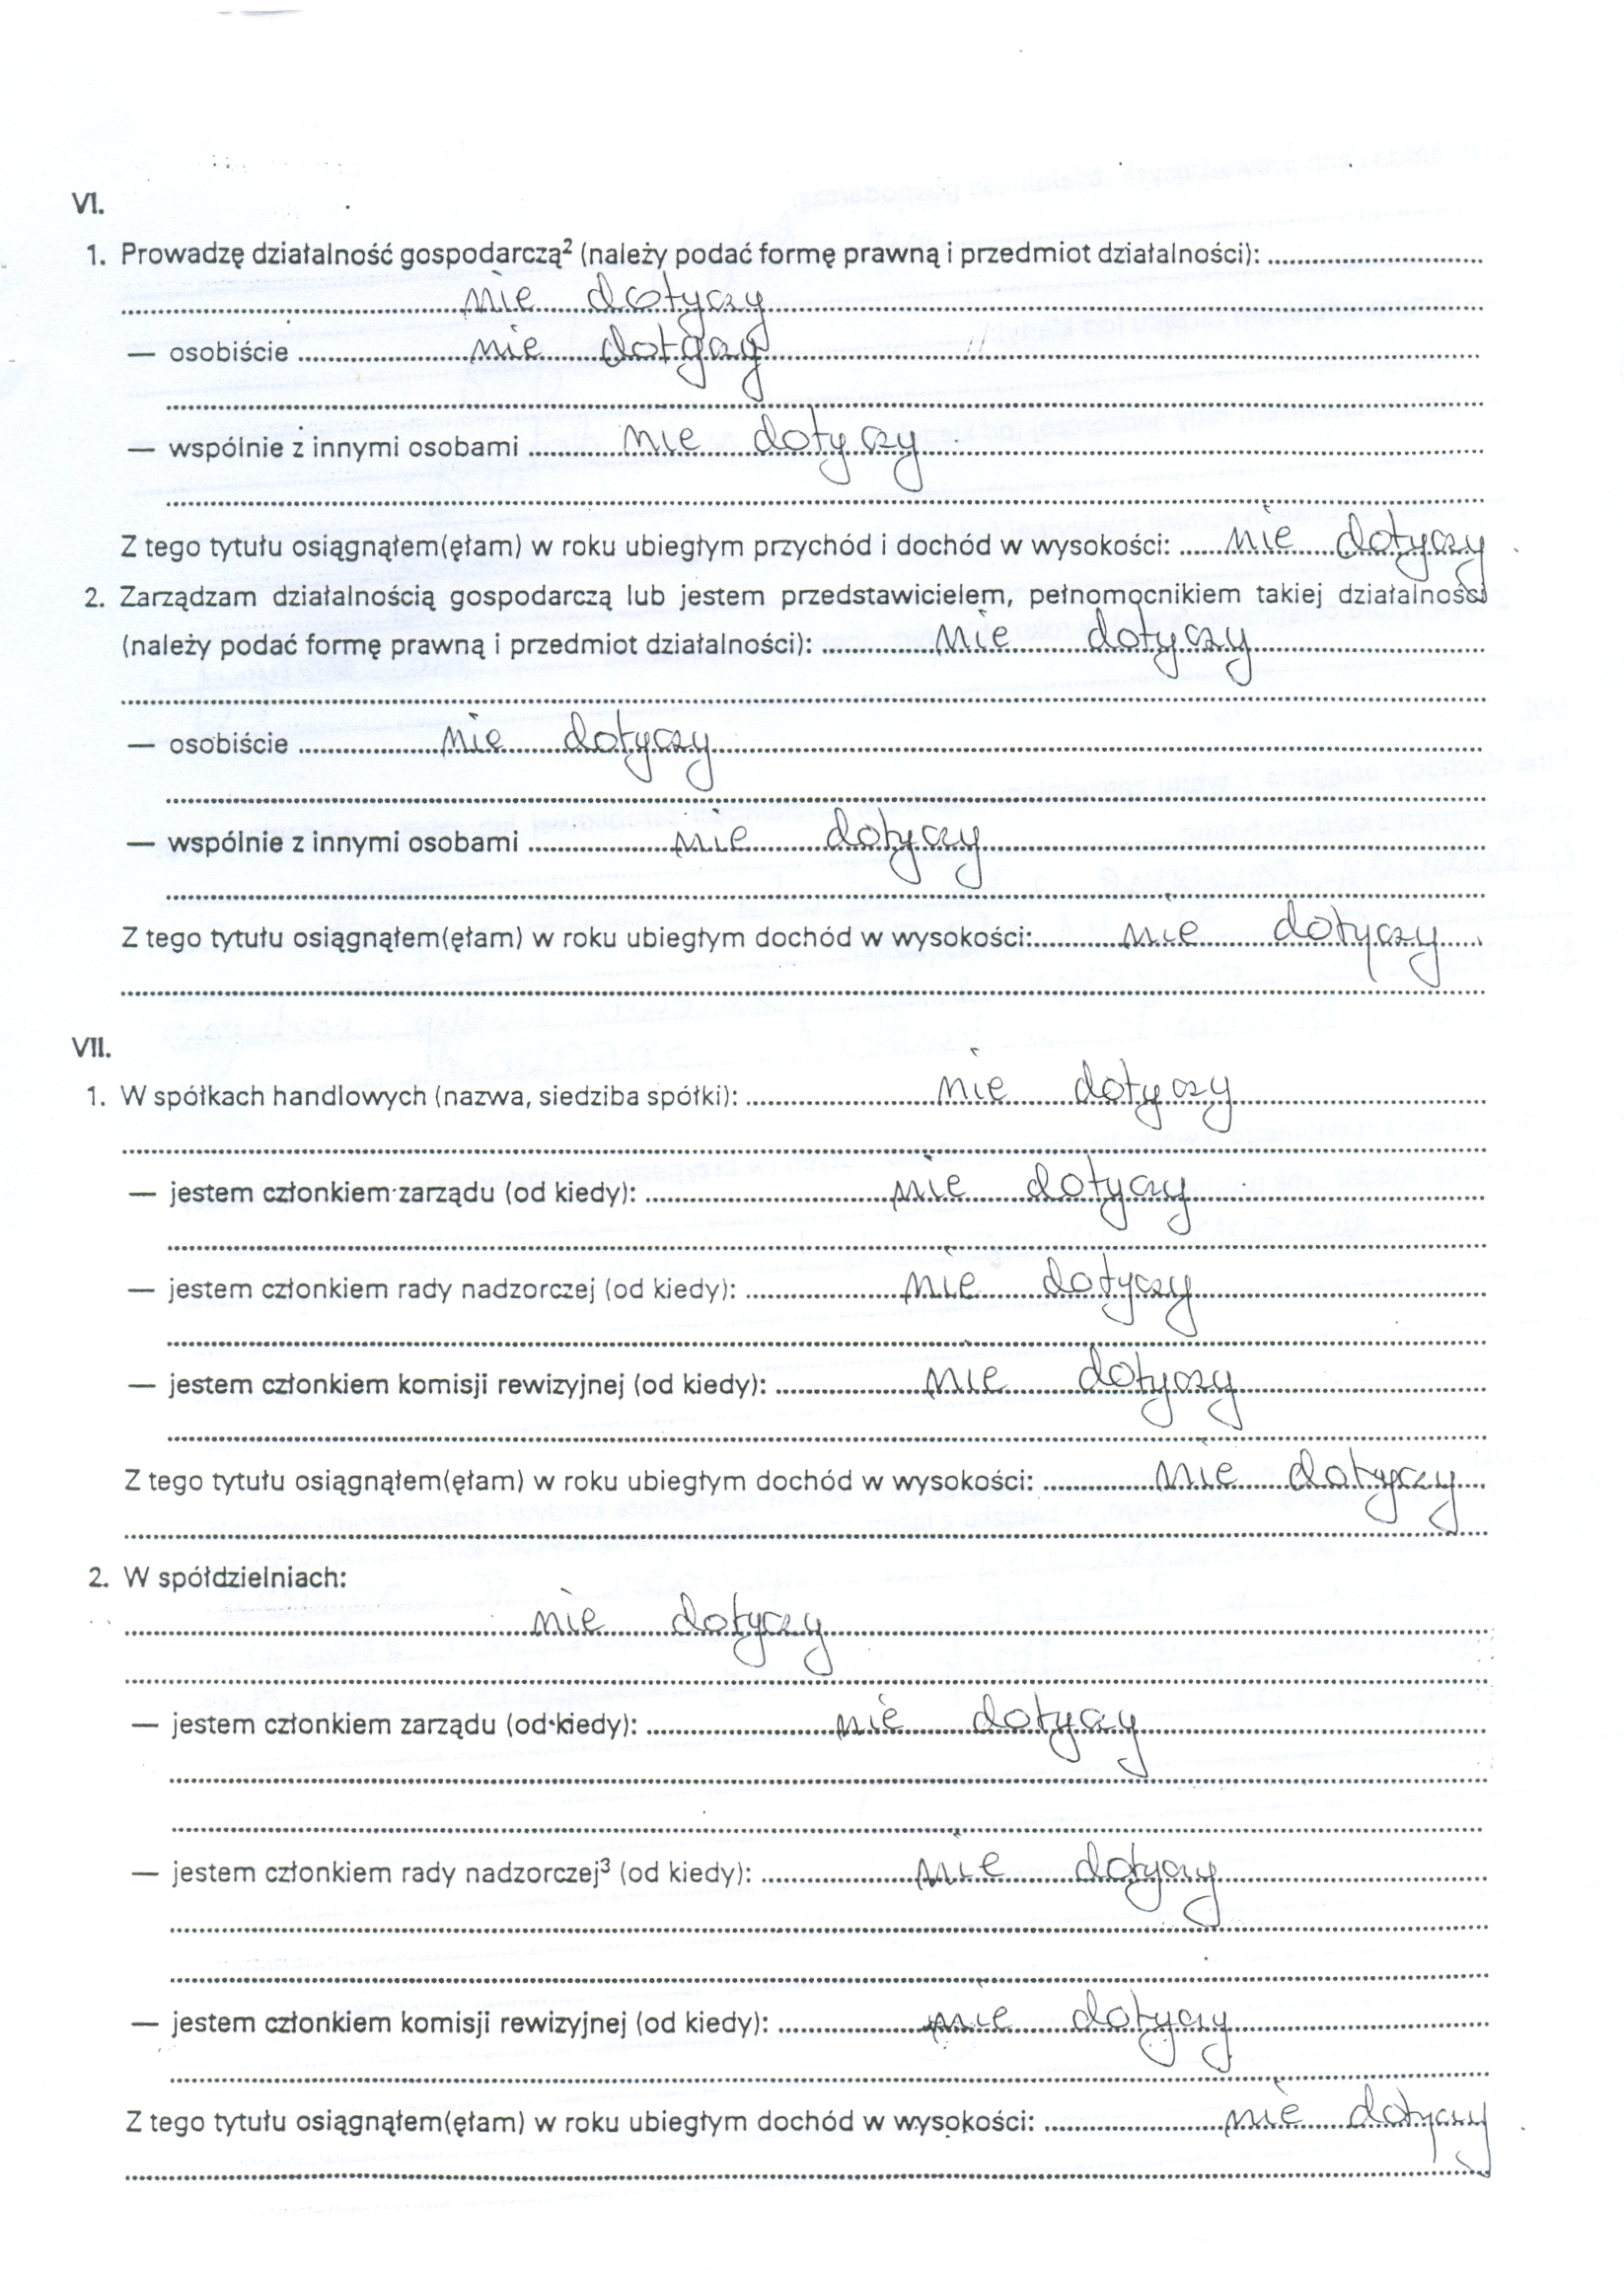 VI.
1. Prowadzę działalność gospodarczą² (należy podać formę prawną i przedmiot działalności): ....................
nie dotyczy
— osobiście nie dotyczy
— wspólnie z innymi osobami nie dotyczy
Z tego tytułu osiągnąłem(ęłam) w roku ubiegłym przychód i dochód w wysokości: nie dotyczy
2. Zarządzam działalnością gospodarczą lub jestem przedstawicielem, pełnomocnikiem takiej działalności
(należy podać formę prawną i przedmiot działalności): nie dotyczy
— osobiście nie dotyczy
— wspólnie z innymi osobami nie dotyczy
Z tego tytułu osiągnąłem(ęłam) w roku ubiegłym dochód w wysokości: nie dotyczy
VII.
1. W spółkach handlowych (nazwa, siedziba spółki): nie dotyczy
— jestem członkiem zarządu (od kiedy): nie dotyczy
— jestem członkiem rady nadzorczej (od kiedy): nie dotyczy
— jestem członkiem komisji rewizyjnej (od kiedy): nie dotyczy
Z tego tytułu osiągnąłem(ęłam) w roku ubiegłym dochód w wysokości: nie dotyczy
2. W spółdzielniach:
nie dotyczy
— jestem członkiem zarządu (od kiedy): nie dotyczy
— jestem członkiem rady nadzorczej³ (od kiedy): nie dotyczy
— jestem członkiem komisji rewizyjnej (od kiedy): nie dotyczy
Z tego tytułu osiągnąłem(ęłam) w roku ubiegłym dochód w wysokości: nie dotyczy